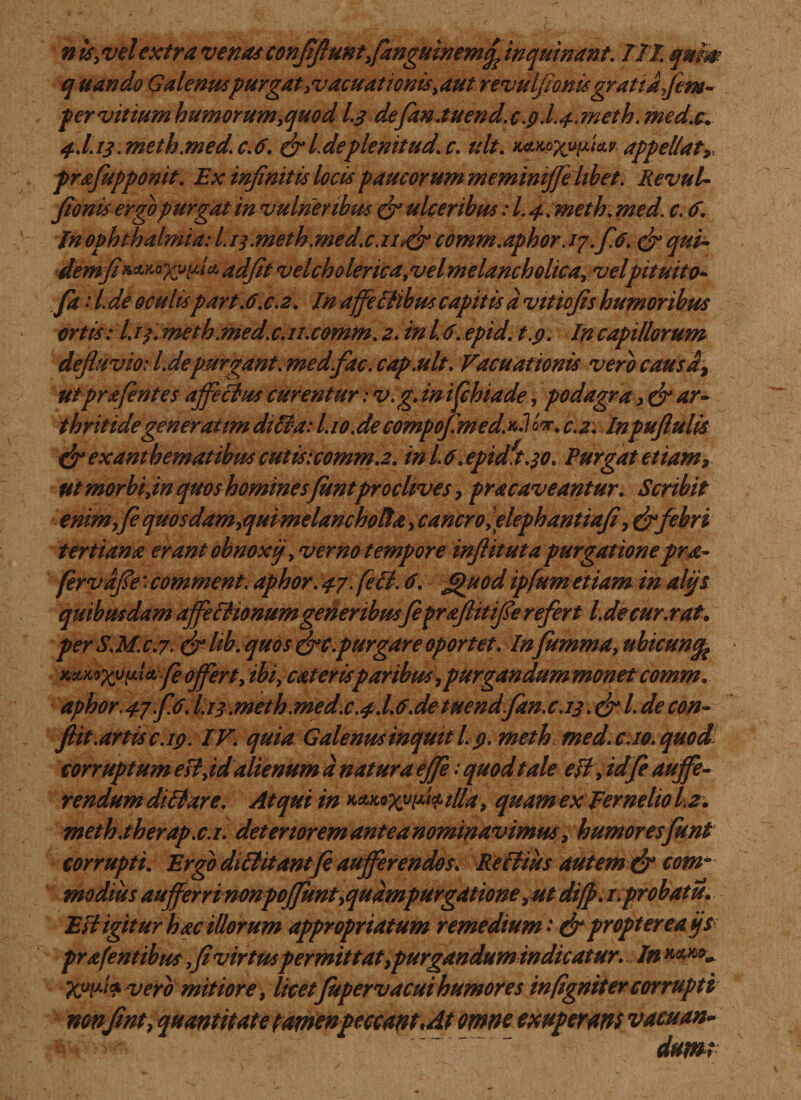 nis,vel extra venas consistunt,sanguinemq; inquinant. III. quia
quando Galenus purgat,vacuationis,aut revulsionis gratiâ,sem-
per vitium humorum,quod l.3 de san.tuend.c.9.l.4.meth. med.c.
4.l.13.meth.med. c.6. & l.de plenitud. c. ult. κακοχυμίαν appellat,
præsupponit. Ex infinitis locis paucorum meminisse libet. Revul-
sionis ergò purgat in vulneribus & ulceribus: l.4.meth. med. c. 6.
In ophthalmia: l.13.meth.med.c.11.& comm.aphor.17.s.6. & qui-
dem si κακοχυμία adsit vel cholerica,vel melancholica, vel pituito-
sa: l.de oculis part.6.c.2. In affectibus capitis à vitiosis humoribus
ortis: l.13.meth.med.c.11.comm.2. in l.6.epid. t.9. In capillorum
defluvio: l.de purgant. med.fac. cap.ult. Vacuationis verò causâ,
ut præsentes affectus curentur: v.g. in ischiade, podagra, & ar-
thritide generatim dicta: l.10.de compos.med.κ.τόπ. c.2. In pustulis
& exanthematibus cutis:comm.2. in l.6.epid.t.30. Purgat etiam,
ut morbi,in quos homines sunt proclives, præcaveantur. Scribit
enim,se quosdam,qui melancholiæ, cancro, elephantiasi, & febri
tertianæ erant obnoxij, verno tempore instituta purgatione præ-
servâsse: comment. aphor. 47. sect. 6. Quod ipsum etiam in alijs
quibusdam affectionum generibus se præstitisse refert l.de cur.rat.
per S.M.c.7. & lib. quos &c.purgare oportet. In summa, ubicunq;
κακοχυμία se offert, ibi, cæteris paribus, purgandum monet comm.
aphor.47.s.6.l.13.meth.med.c.4.l.6.de tuend.san.c.13.& l. de con-
stit.artis c.19. IV. quia Galenus inquit l.9. meth med. c.10. quod
corruptum est,id alienum à natura esse: quod tale est, id se aufe-
rendum dictare. Atqui in κακοχυμίᾳ illa, quam ex Fernelio l.2.
meth.therap.c.1. deteriorem antea nominavimus, humores sunt
corrupti. Ergò dictitant se auferendos. Rectius autem & com-
modius auferri non possunt,quàm purgatione, ut disp. 1. probatũ.
Est igitur hæc illorum appropriatum remedium: & propterea ijs
præsentibus, si virtus permittat,purgandum indicatur. In κακο-
χυμίᾳ verò mitiore, licet supervacui humores insigniter corrupti
non sint, quantitate tamen peccant.At omne exuperans vacuan-
dum: